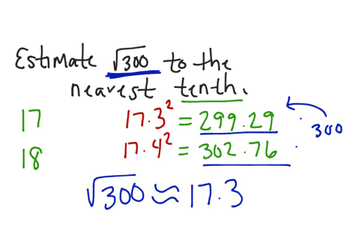 Estimate √300 to the
nearest tenth.
17 17.3² = 299.29
300
18 17.4² = 302.76
√300 ≈ 17.3